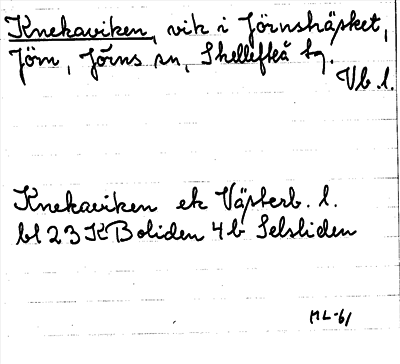 Knekaviken, vik i Jörnshäpket,
Jörn, Jörns sn, Skellefteå tg.
Vb. l.
Knekaviken ek Väpterb. l.
bl 23 K Boliden 4b Selsliden
ML-61